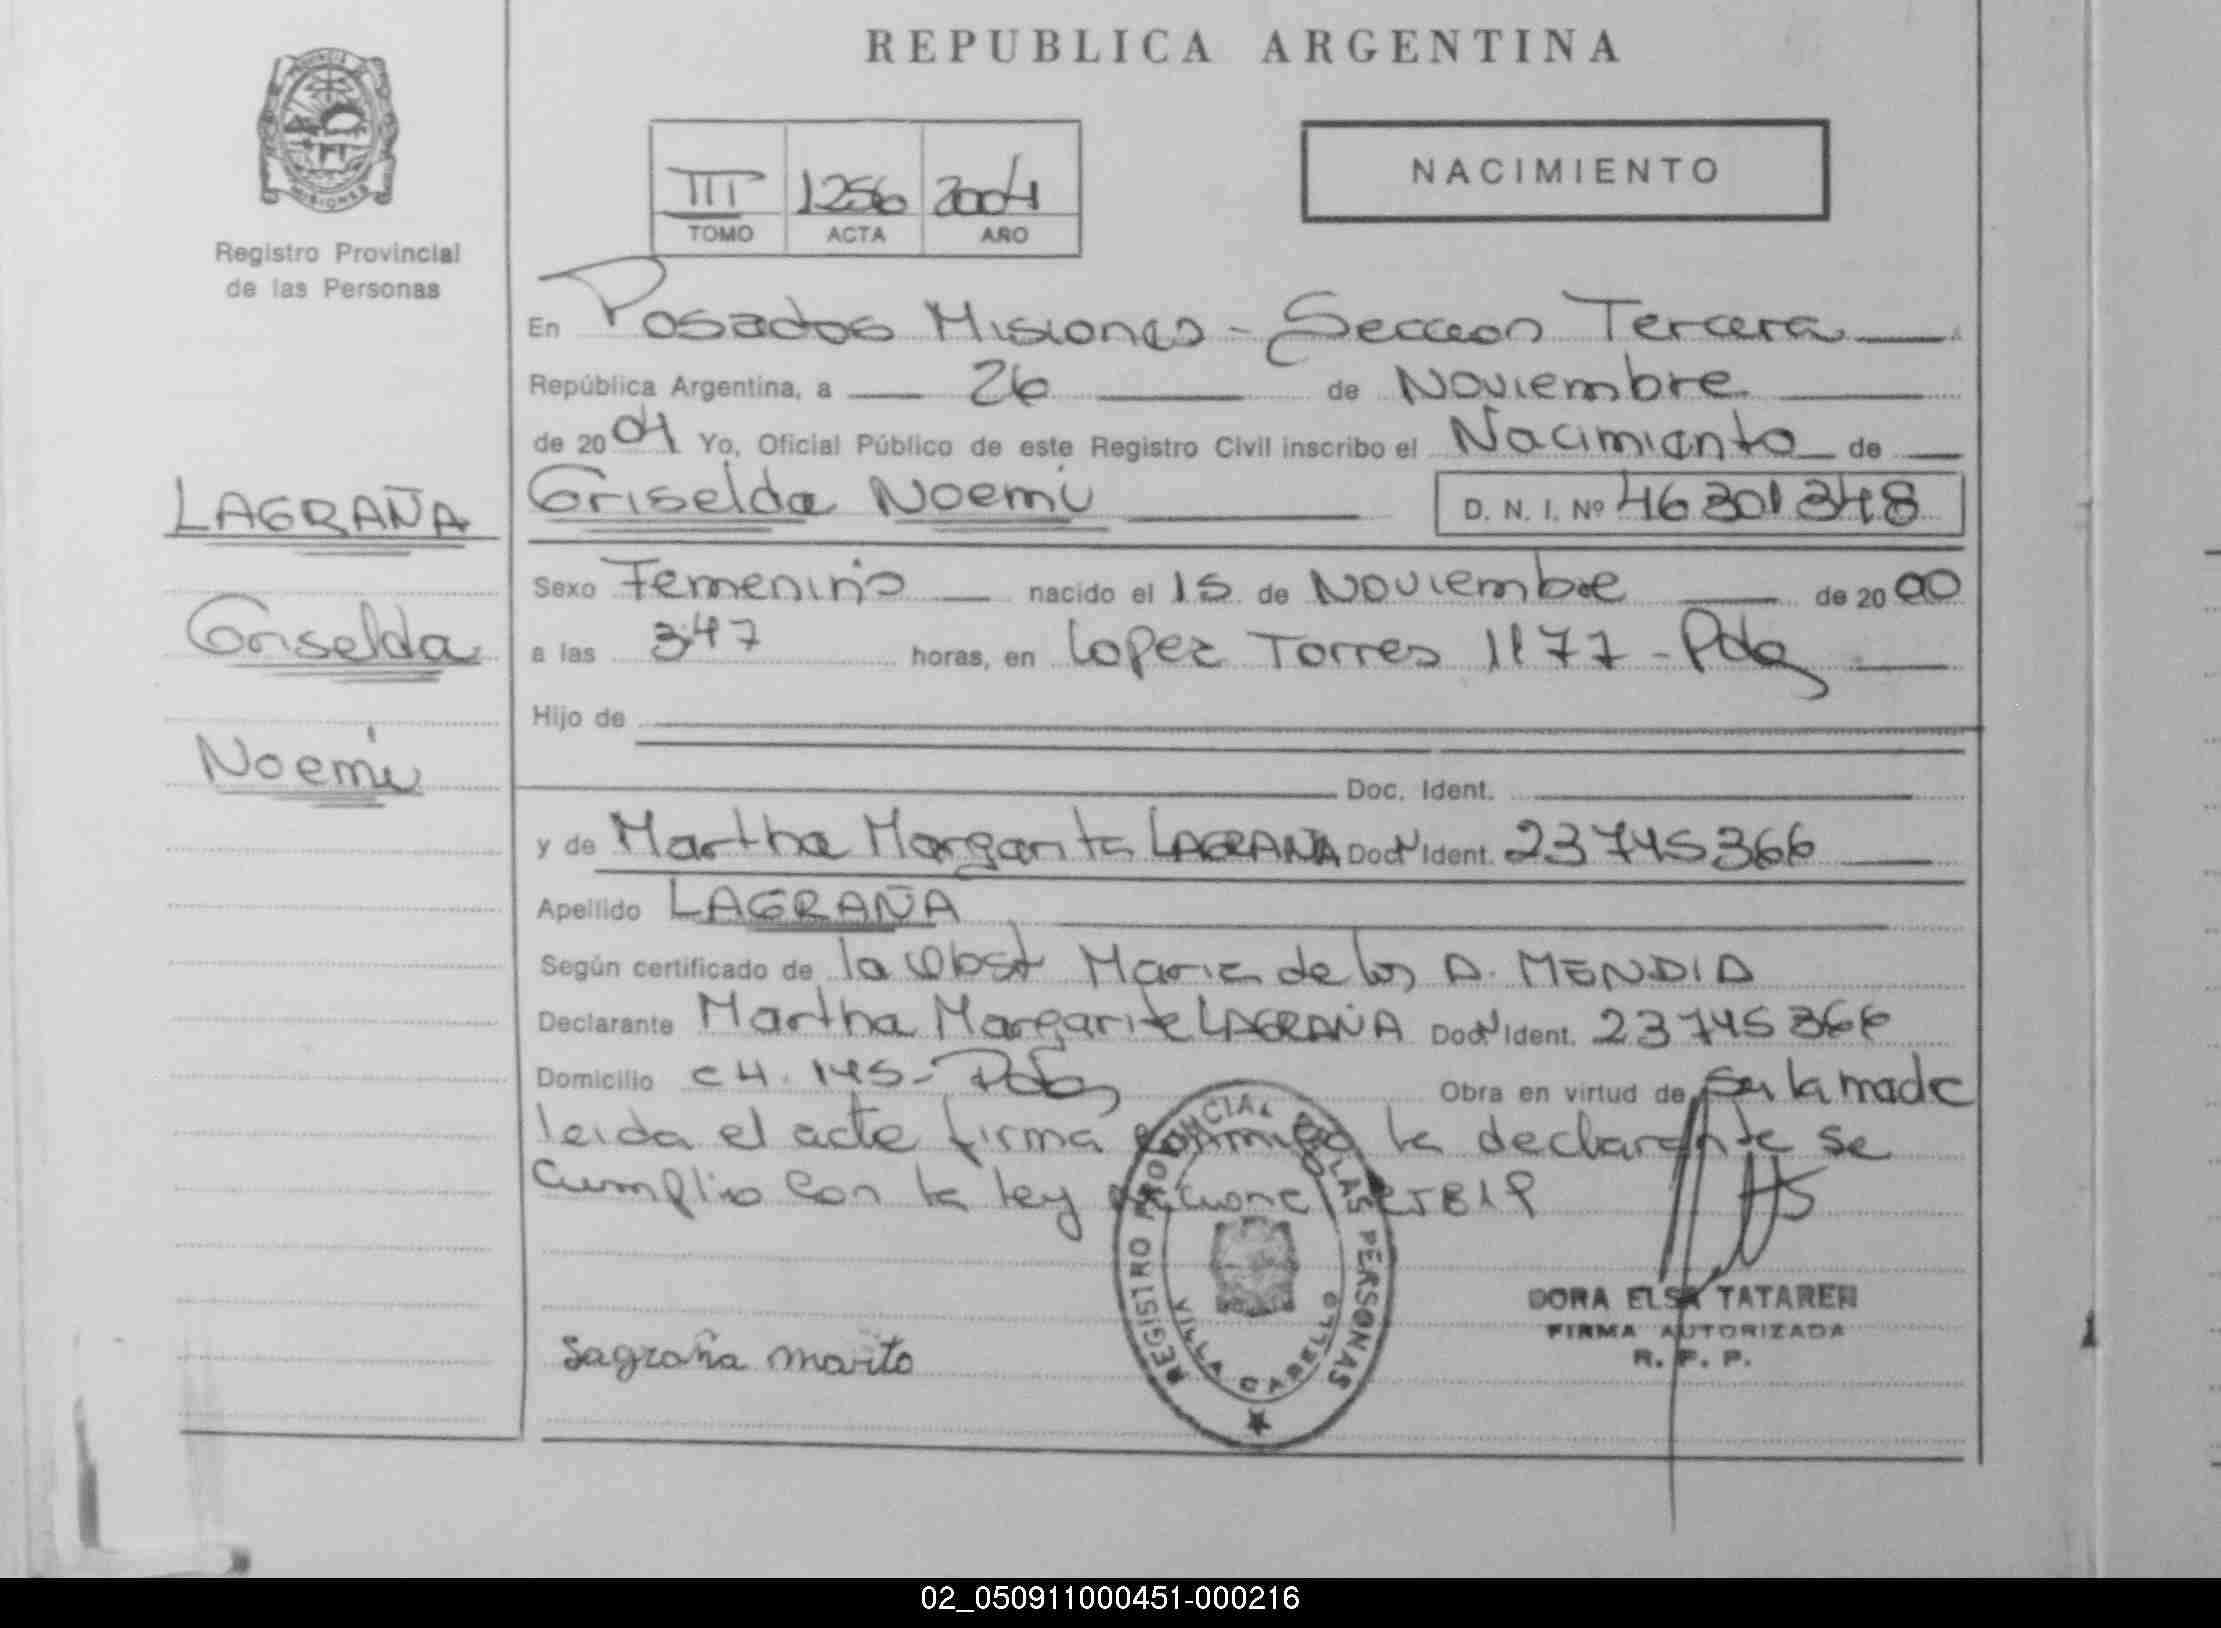 REPUBLICA ARGENTINA
PROVINCIA
MISIONES
Registro Provincial
de las Personas
III 1256 2004
TOMO ACTA AÑO
NACIMIENTO
En Posadas Misiones - Seccion Tercera
República Argentina, a 26 de Noviembre
de 2004 Yo, Oficial Público de este Registro Civil inscribo el Nacimiento de
LAGRAÑA
Griselda
Noemi
Griselda Noemi D. N. I. Nº 46301348
Sexo Femenino nacido el 15 de Noviembre de 2000
a las 3:47 horas, en Lopez Torres 1177 - Pdas
Hijo de
Doc. Ident.
y de Martha Margarita LAGRAÑA Doc. Ident. 23745366
Apellido LAGRAÑA
Según certificado de la Obst Maria de los A. MENDIA
Declarante Martha Margarita LAGRAÑA Doc. Ident. 23745366
Domicilio CH. 145 - Pdas Obra en virtud de ser la madre
leida el acta firma conmigo la declarante se
cumplio con la ley
REGISTRO PROVINCIAL DE LAS PERSONAS
VILLA CABELLO
DORA ELSA TATAREN
FIRMA AUTORIZADA
R. P. P.
Lagraña marta
02_050911000451-000216